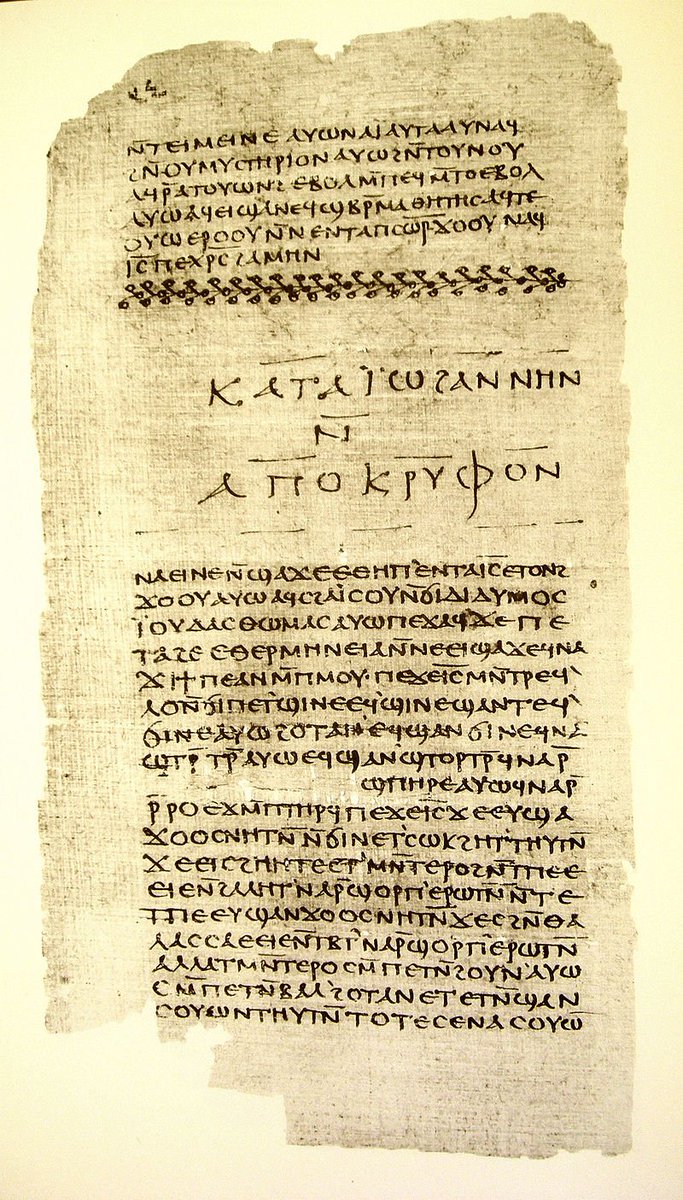 ⲛ̄ⲧⲉⲓⲙⲉⲓⲛⲉ ⲁⲩⲱ ⲛⲁⲓ̈ ⲁⲩⲧⲁⲁⲩ ⲛⲁϥ
ϩⲛ̄ ⲟⲩⲙⲩⲥⲧⲏⲣⲓⲟⲛ ⲁⲩⲱ ϩⲛ̄ ⲧⲟⲩⲛⲟⲩ
ⲁϥⲣ̄ⲁⲧⲟⲩⲱⲛϩ ⲉⲃⲟⲗ ⲙ̄ⲡⲉϥⲙ̄ⲧⲟ ⲉⲃⲟⲗ
ⲁⲩⲱ ⲁϥⲉⲓ ϣⲁ ⲛⲉϥϣⲃⲣ̄ⲙⲁⲑⲏⲧⲏⲥ ⲁϥⲧⲉ
ⲟⲩⲱ ⲉⲣⲟⲟⲩ ⲛ̄ⲛⲉⲛⲧⲁ ⲡⲥⲱ̄ⲣ̄ ϫⲟⲟⲩ ⲛⲁϥ
ⲓ̄ⲥ̄ ⲡⲉⲭ̄ⲣ̄ⲥ̄ ϩⲁⲙⲏⲛ
ⲕⲁⲧⲁ ⲓ̈ⲱϩⲁⲛⲛⲏⲛ
ⲛ̄
ⲁⲡⲟⲕⲣⲩⲫⲟⲛ
ⲛⲁⲉⲓ ⲛⲉ ⲛ̄ϣⲁϫⲉ ⲉⲑⲏⲡ ⲉⲛⲧⲁ ⲓ̄ⲥ̄ ⲉⲧⲟⲛϩ
ϫⲟⲟⲩ ⲁⲩⲱ ⲁϥⲥϩⲁⲓ̈ⲥⲟⲩ ⲛ̄ϭⲓ ⲇⲓⲇⲩⲙⲟⲥ
ⲓ̈ⲟⲩⲇⲁⲥ ⲑⲱⲙⲁⲥ ⲁⲩⲱ ⲡⲉϫⲁϥ ϫⲉ ⲡⲉ
ⲧⲁϩⲉ ⲉⲑⲉⲣⲙⲏⲛⲉⲓⲁ ⲛ̄ⲛⲉⲉⲓϣⲁϫⲉ ϥⲛⲁ
ϫⲓ ϯⲡⲉ ⲁⲛ ⲙ̄ⲡⲙⲟⲩ ⲡⲉϫⲉ ⲓ̄ⲥ̄ ⲙⲛ̄ⲧⲣⲉϥ
ⲗⲟ ⲛ̄ϭⲓ ⲡⲉⲧϣⲓⲛⲉ ⲉϥϣⲓⲛⲉ ϣⲁⲛⲧⲉϥ
ϭⲓⲛⲉ ⲁⲩⲱ ϩⲟⲧⲁⲛ ⲉϥϣⲁⲛϭⲓⲛⲉ ϥⲛⲁ
ϣⲧⲣ̄ⲧⲣ̄ ⲁⲩⲱ ⲉϥϣⲁⲛϣⲧⲟⲣⲧⲣ̄ ϥⲛⲁⲣ̄
ϣⲡⲏⲣⲉ ⲁⲩⲱ ϥⲛⲁⲣ̄
ⲣ̄ⲣⲟ ⲉϫⲙ̄ ⲡⲧⲏⲣϥ ⲡⲉϫⲉ ⲓ̄ⲥ̄ ϫⲉ ⲉⲩϣⲁ
ϫⲟⲟⲥ ⲛⲏⲧⲛ̄ ⲛ̄ϭⲓ ⲛⲉⲧⲥⲱⲕ ϩⲏⲧ ⲧⲏⲩⲧⲛ̄
ϫⲉ ⲉⲓⲥϩⲏⲏⲧⲉ ⲉⲧⲙⲛ̄ⲧⲉⲣⲟ ϩⲛ̄ ⲧⲡⲉ ⲉ
ⲉⲓⲉ ⲛϩⲁⲗⲏⲧ ⲛⲁⲣ̄ϣⲟⲣⲡ ⲉⲣⲱⲧⲛ̄ ⲛ̄ⲧⲉ
ⲧⲡⲉ ⲉⲩϣⲁⲛϫⲟⲟⲥ ⲛⲏⲧⲛ̄ ϫⲉ ⲥϩⲛ̄ ⲑⲁ
ⲗⲁⲥⲥⲁ ⲉⲉⲓⲉ ⲛ̄ⲧⲃⲧ ⲛⲁⲣ̄ϣⲟⲣⲡ ⲉⲣⲱⲧⲛ̄
ⲁⲗⲗⲁ ⲧⲙⲛ̄ⲧⲉⲣⲟ ⲥⲙ̄ⲡⲉⲧⲛ̄ϩⲟⲩⲛ ⲁⲩⲱ
ⲥⲙ̄ⲡⲉⲧⲛ̄ⲃⲁⲗ ϩⲟⲧⲁⲛ ⲉⲧⲉⲧⲛ̄ϣⲁⲛ
ⲥⲟⲩⲱⲛ ⲧⲏⲩⲧⲛ̄ ⲧⲟⲧⲉ ⲥⲉⲛⲁⲥⲟⲩⲱ̄